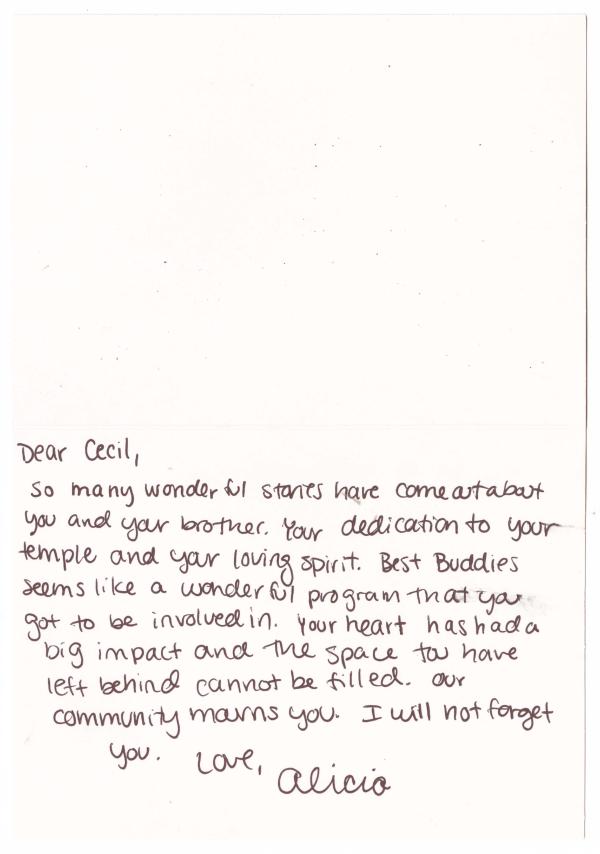 Dear Cecil,
So many wonderful stories have come out about
you and your brother. Your dedication to your
temple and your loving spirit. Best Buddies
seems like a wonderful program that you
got to be involved in. Your heart has had a
big impact and the space you have
left behind cannot be filled. Our
community mourns you. I will not forget
you. Love,
Alicia